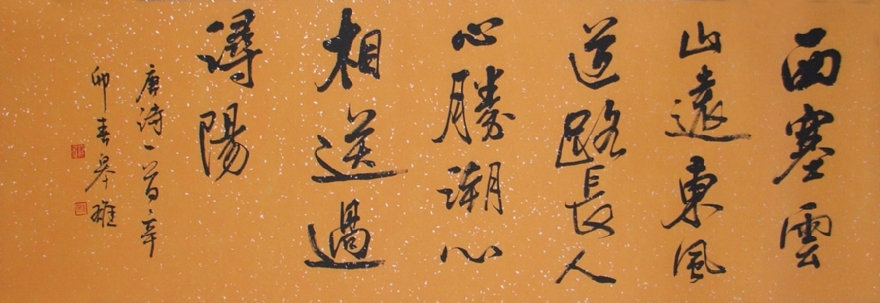 西塞雲
山遠東風
道路長人
心勝潮水
相送過
潯陽
唐詩一首辛
卯春